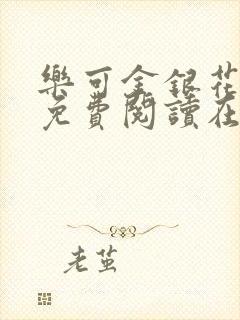 樂可金銀花
免費閱讀在
老茧